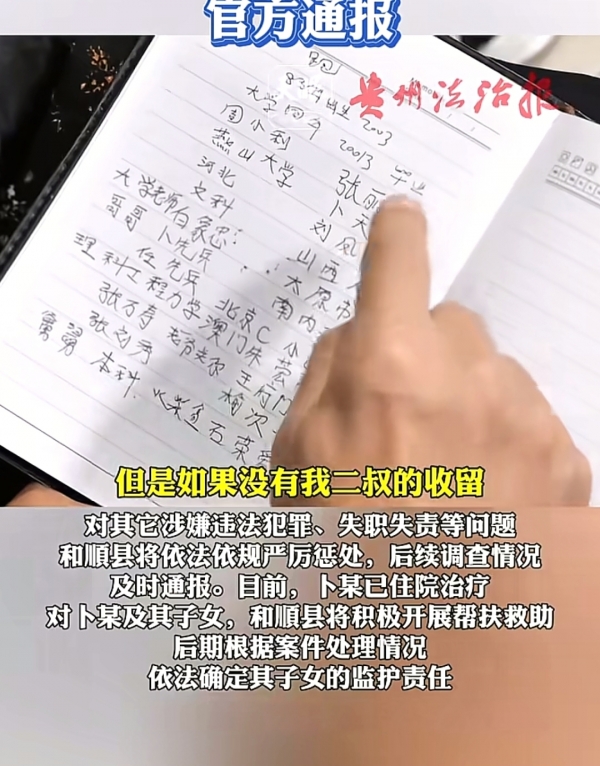 官方通报
贵州法治报
83年出生 2003
大学四年 20013 毕业
周小利 张丽
燕山大学 卜天
河北 刘凤
文科 山西
大学老师石象忠: 太原市
哥哥 卜先兵 南内
任先兵 北京C 小
理科工程力学澳门朱莹
张万寿 王府门
张刘秀 榆次
本科. 石荣
但是如果没有我二叔的收留
对其它涉嫌违法犯罪、失职失责等问题
和顺县将依法依规严厉惩处，后续调查情况
及时通报。目前，卜某已住院治疗
对卜某及其子女，和顺县将积极开展帮扶救助
后期根据案件处理情况
依法确定其子女的监护责任